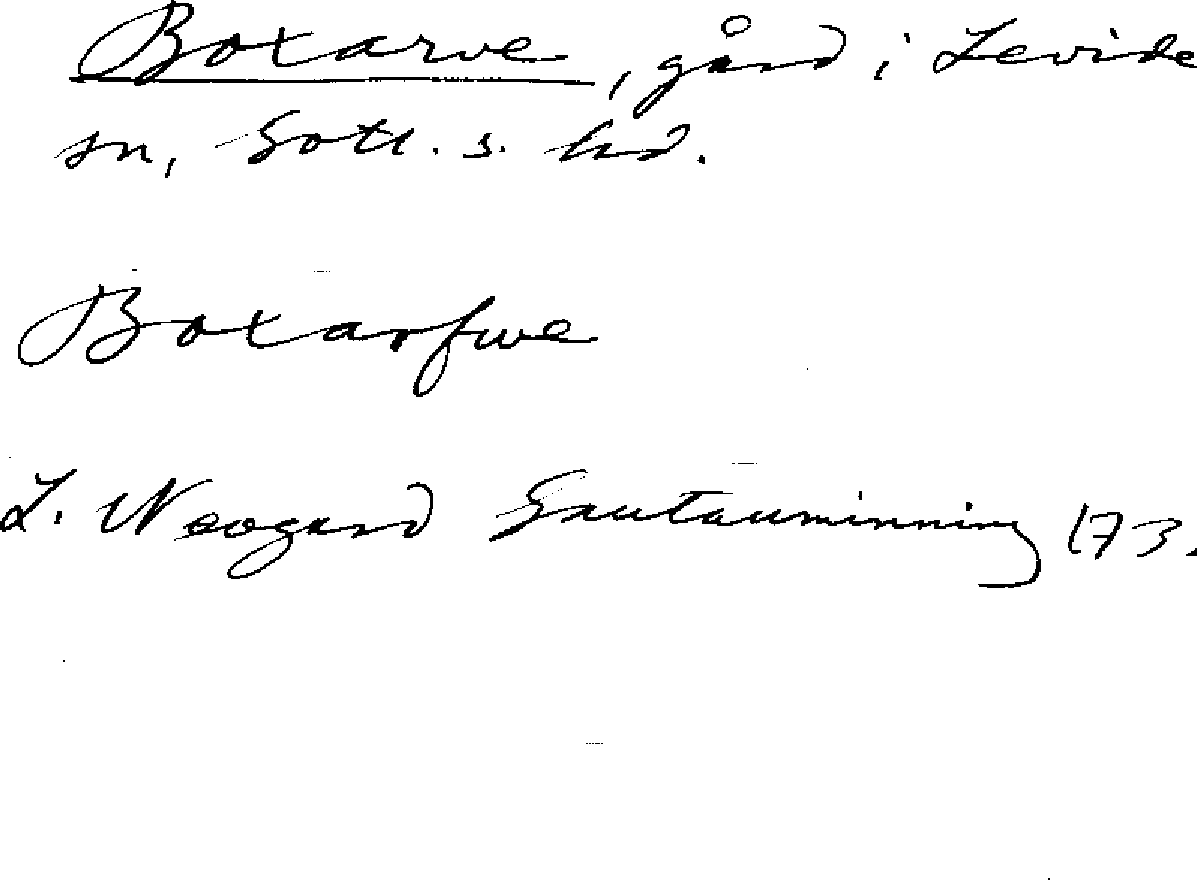 Boxarve, gård i Levide
sn, Gotl. s. hd.
Boxarfwe
L. Neogard Gautauminning 173.